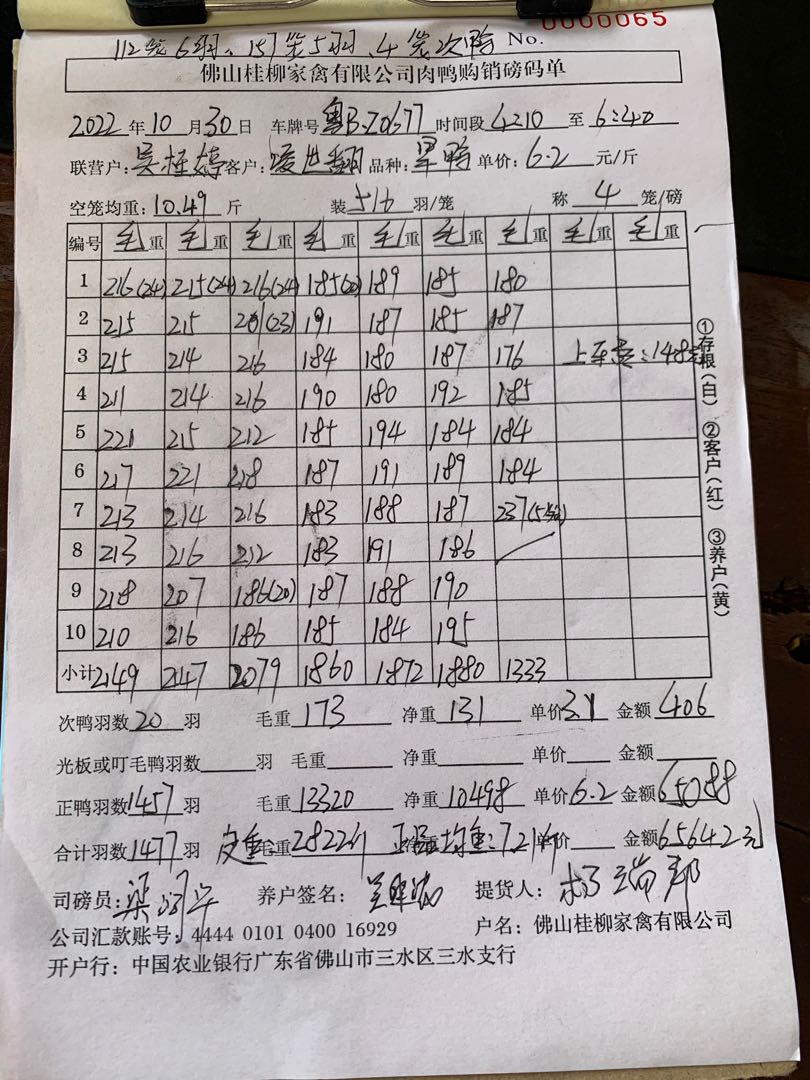 112笼6羽、157笼5羽、4笼次鸭 No. 0000065
佛山桂柳家禽有限公司肉鸭购销磅码单
2022年10月30日 车牌号 粤B·Z0677 时间段 4:10 至 6:40
联营户: 客户: 品种: 单价: 6.2 元/斤
空笼均重: 10.49 斤 装 5/6 羽/笼 称 4 笼/磅
编号 毛重 毛重 毛重 毛重 毛重 毛重 毛重 毛重 毛重
1 216(24) 215(24) 216(24) 185(20) 189 185 180
2 215 215 201(23) 191 187 185 187
3 215 214 216 184 180 187 176 上车
4 211 214 216 190 180 192 185
5 221 215 212 185 194 184 184
6 217 221 218 187 191 189 184
7 213 214 216 183 188 187 237
8 213 216 212 183 191 186
9 218 207 186(20) 187 188 190
10 210 216 186 185 184 195
小计 2149 2147 2079 1860 1872 1880 1333
①存根(白) ②客户(红) ③养户(黄)
次鸭羽数 20 羽 毛重 173 净重 131 单价 3.1 金额 406
光板或叮毛鸭羽数 羽 毛重 净重 单价 金额
正鸭羽数 1457 羽 毛重 13320 净重 10498 单价 6.2 金额 65088
合计羽数 1477 羽 皮重: 毛重 2822斤 均重: 7.21斤 单价 金额 65642元
司磅员: 养户签名: 提货人:
公司汇款账号: 4444 0101 0400 16929 户名: 佛山桂柳家禽有限公司
开户行: 中国农业银行广东省佛山市三水区三水支行